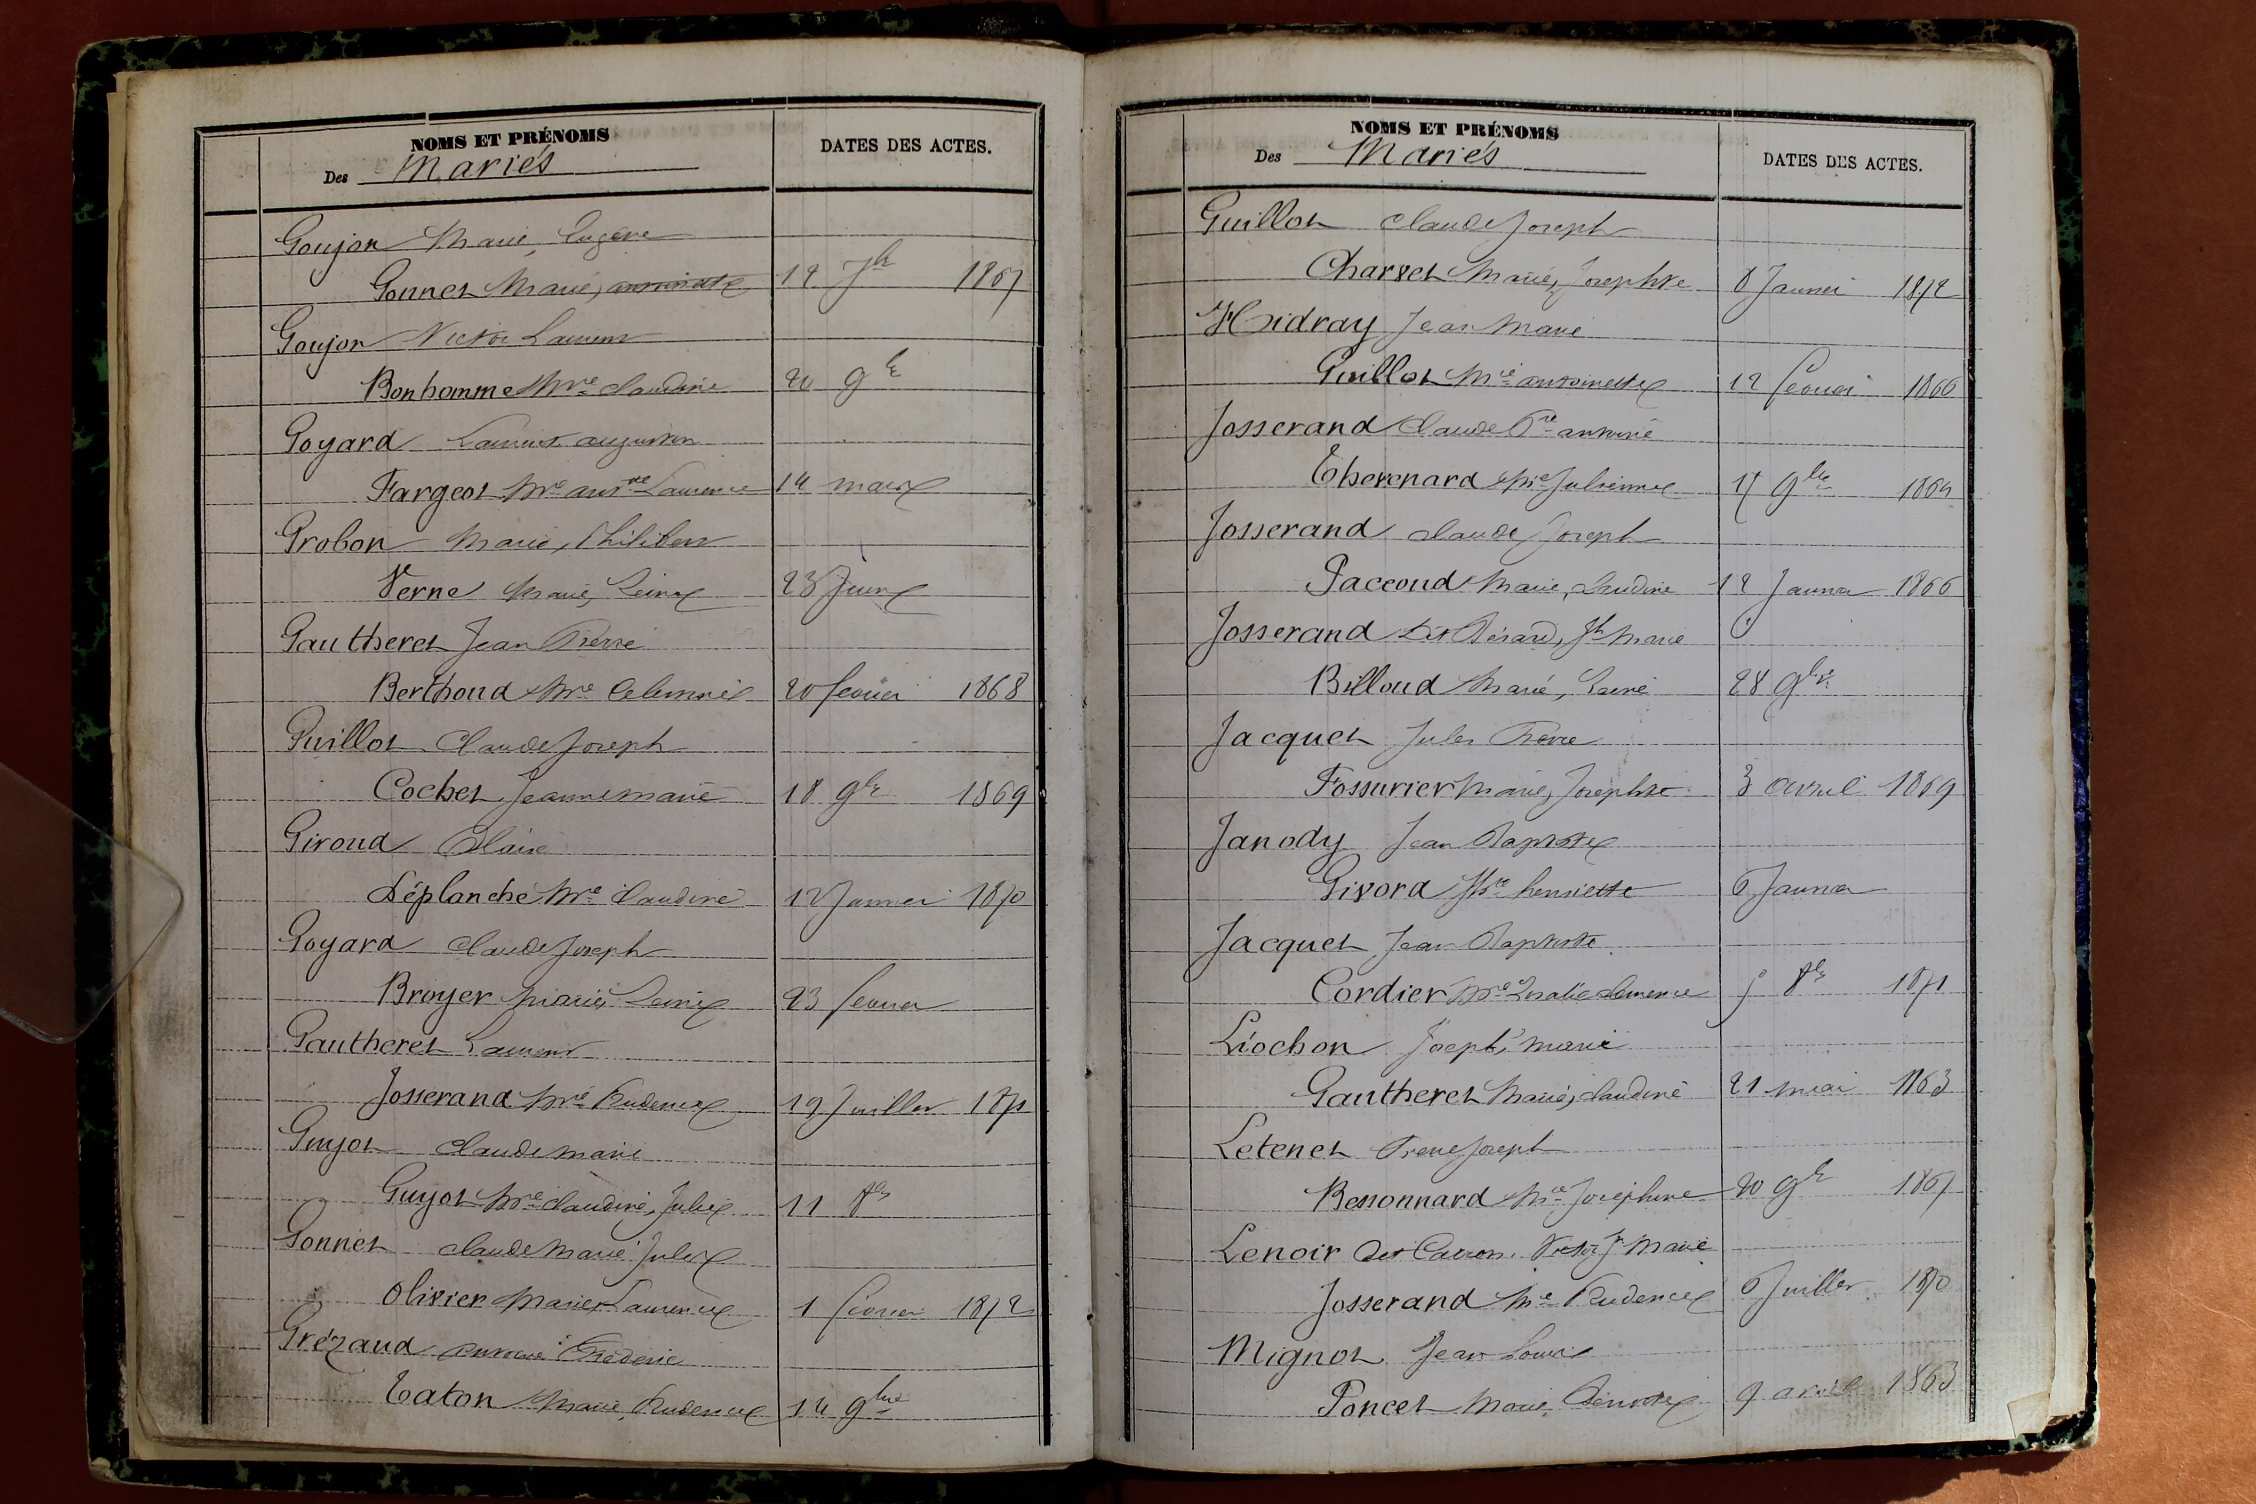 NOMS ET PRÉNOMS
Des Mariés
DATES DES ACTES.
Goujon Marie, Eugène
Gonnet Marie, antoinette 12 7bre 1867
Goujon Victor Laurent
Bonhomme Mie Claudine 20 9bre
Goyard Laurent augustin
Fargeot Mie antte Laurence 14 mars
Grobon Marie, Philibert
Verne Marie, Leine 23 Juin
Gautheret Jean Pierre
Berthoud Mie Clemence 20 fevrier 1868
Guillot Claude Joseph
Cochet Jeanne marie 18 9bre 1869
Giroud Claire
Déplanche Mie Claudine 12 Janvier 1870
Goyard Claude Joseph
Broyer Marie 23 fevrier
Gautheret Laurent
Josserand Mie Prudence 19 Juillet 1871
Guyot Claude marie
Guyot Mie Claudine, Julie 11 8bre
Gonnet Claude Marie Jules
Olivier Marie Laurence 1 fevrier 1872
Grézaud antoine Frédéric
Caton Marie, Prudence 14 9bre
NOMS ET PRÉNOMS
Des Mariés
DATES DES ACTES.
Guillot Claude Joseph
Charvet Marie, Josephte 8 Janvier 1872
Hidray Jean Marie
Guillot Mie antoinette 12 fevrier 1866
Josserand Claude Pre antoine
Thevenard Mie Julienne 17 9bre 1864
Josserand Claude Joseph
Paccoud Marie, Claudine 12 Janvier 1866
Josserand dit Bérard, Jh Marie
Billoud Marie 28 9bre
Jacquet Jules Pierre
Fossurier Marie, Josephte 3 avril 1869
Janody Jean Baptiste
Givord Mie henriette 6 Janvier
Jacquet Jean Baptiste
Cordier Mie clemence 5 8bre 1871
Liochon Joseph marie
Gautheret Marie, claudine 21 mai 1863
Letenet Pierre Joseph
Bessonnard Mie Joséphine 20 9bre 1867
Lenoir dit Carron, Victor Jh Marie
Josserand Mie Prudence 6 Juillet 1870
Mignot Jean Louis
Poncet Marie, Benoite 9 avril 1863